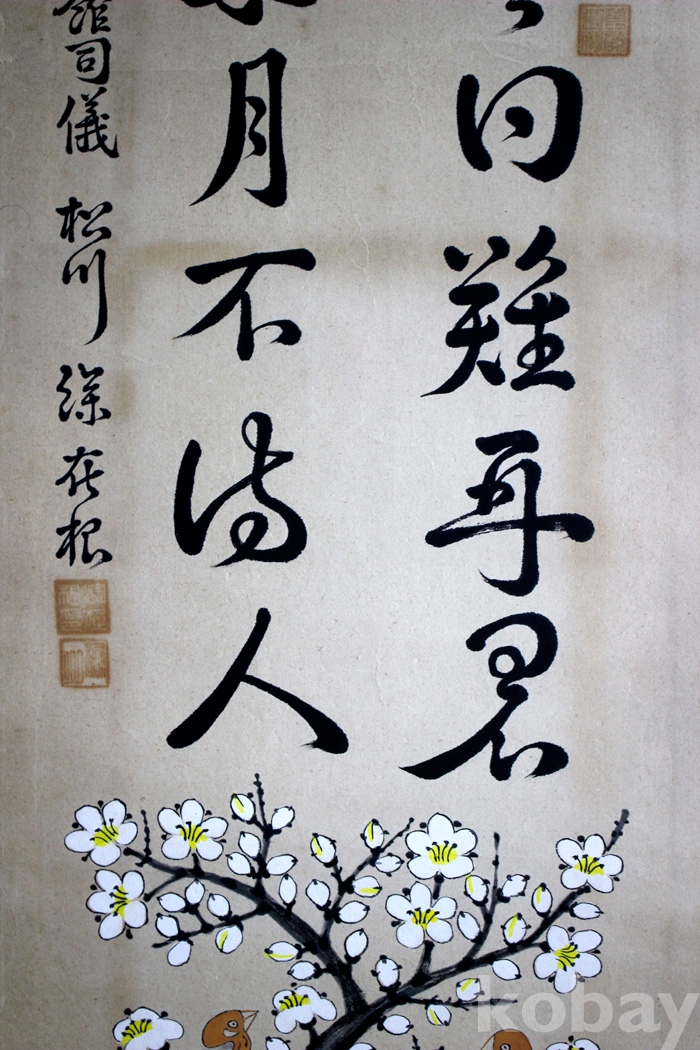 日難再晨
月不待人
司儀 松川 徐在根
kobay